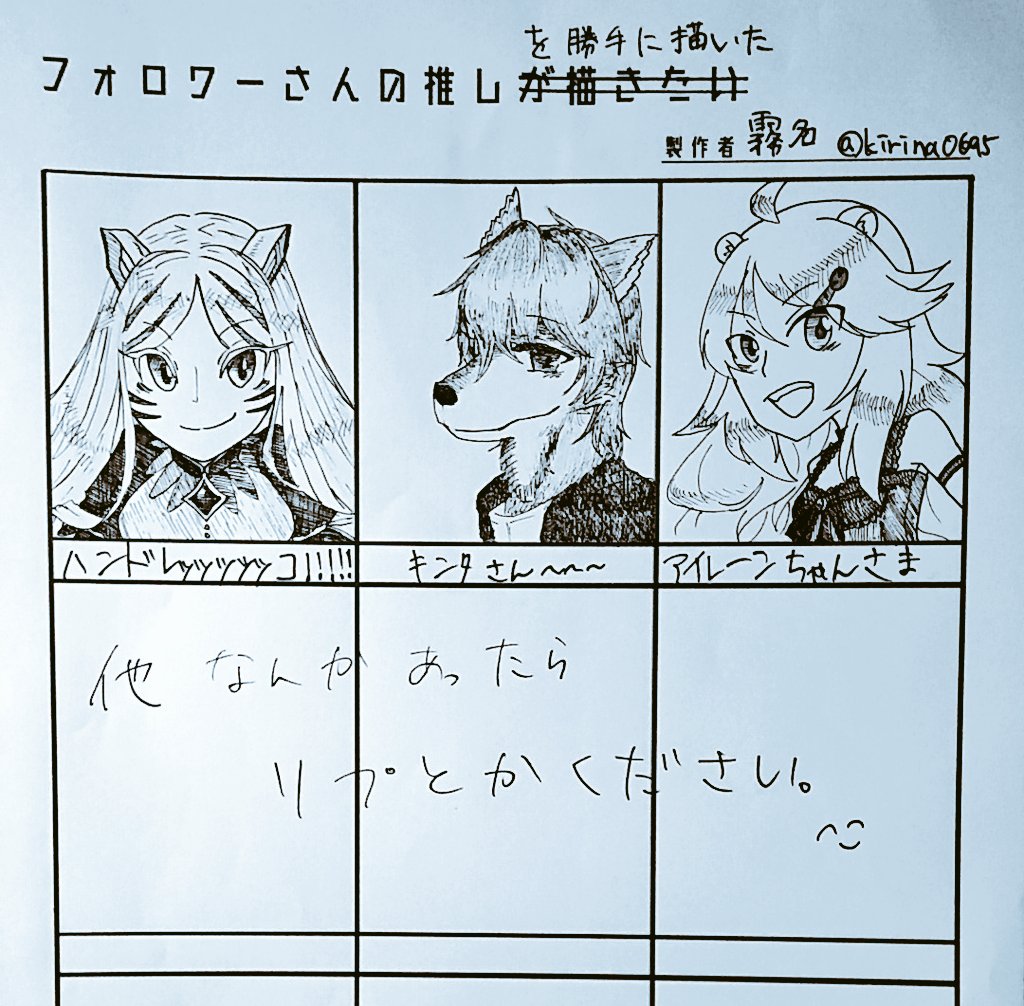 を勝手に描いた
フォロワーさんの推しが描きたい
製作者 霧名 @kirina0695
ハンドレッッッッッコ!!!!!
キンタさん〜〜〜
アイレーンちゃんさま
他なんかあったら
リプとかください。